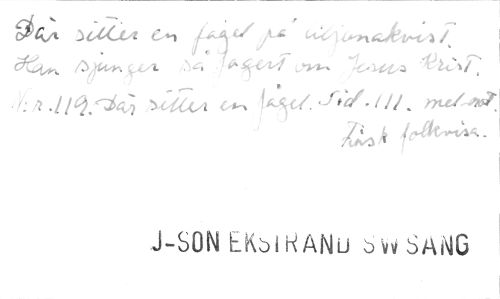 Där sitter en fågel på liljonakvist.
Han sjunger så fagert om Jesus Krist.
N:r.119. Där sitter en fågel. Sid.111. med not.
folkvisa.
J-SON EKSTRAND SW SANG